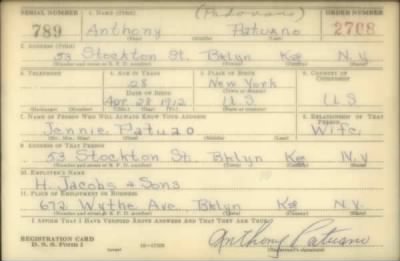 SERIAL NUMBER 1. NAME (Print) (Padovano) ORDER NUMBER
789 Anthony Patuano 2708
(First) (Middle) (Last)
2. ADDRESS (Print)
53 Stockton St. Bklyn Kgs N.Y
(Number and street or R. F. D. number) (Town) (County) (State)
3. TELEPHONE 4. AGE IN YEARS 5. PLACE OF BIRTH 6. COUNTRY OF CITIZENSHIP
28 New York
DATE OF BIRTH (Town or county)
Apr 28 1912 U.S. U.S
(Exchange) (Number) (Mo.) (Day) (Yr.) (State or country)
7. NAME OF PERSON WHO WILL ALWAYS KNOW YOUR ADDRESS 8. RELATIONSHIP OF THAT PERSON
Jennie Patuao Wife
(Mr., Mrs., Miss) (First) (Middle) (Last)
9. ADDRESS OF THAT PERSON
53 Stockton St. Bklyn Kgs N.Y
(Number and street or R. F. D. number) (Town) (County) (State)
10. EMPLOYER'S NAME
H. Jacobs & Sons
11. PLACE OF EMPLOYMENT OR BUSINESS
672 Wythe Ave. Bklyn Kgs N.Y
(Number and street or R. F. D. number) (Town) (County) (State)
I AFFIRM THAT I HAVE VERIFIED ABOVE ANSWERS AND THAT THEY ARE TRUE.
REGISTRATION CARD
D. S. S. Form 1 (over) 16-17105 Anthony Patuano